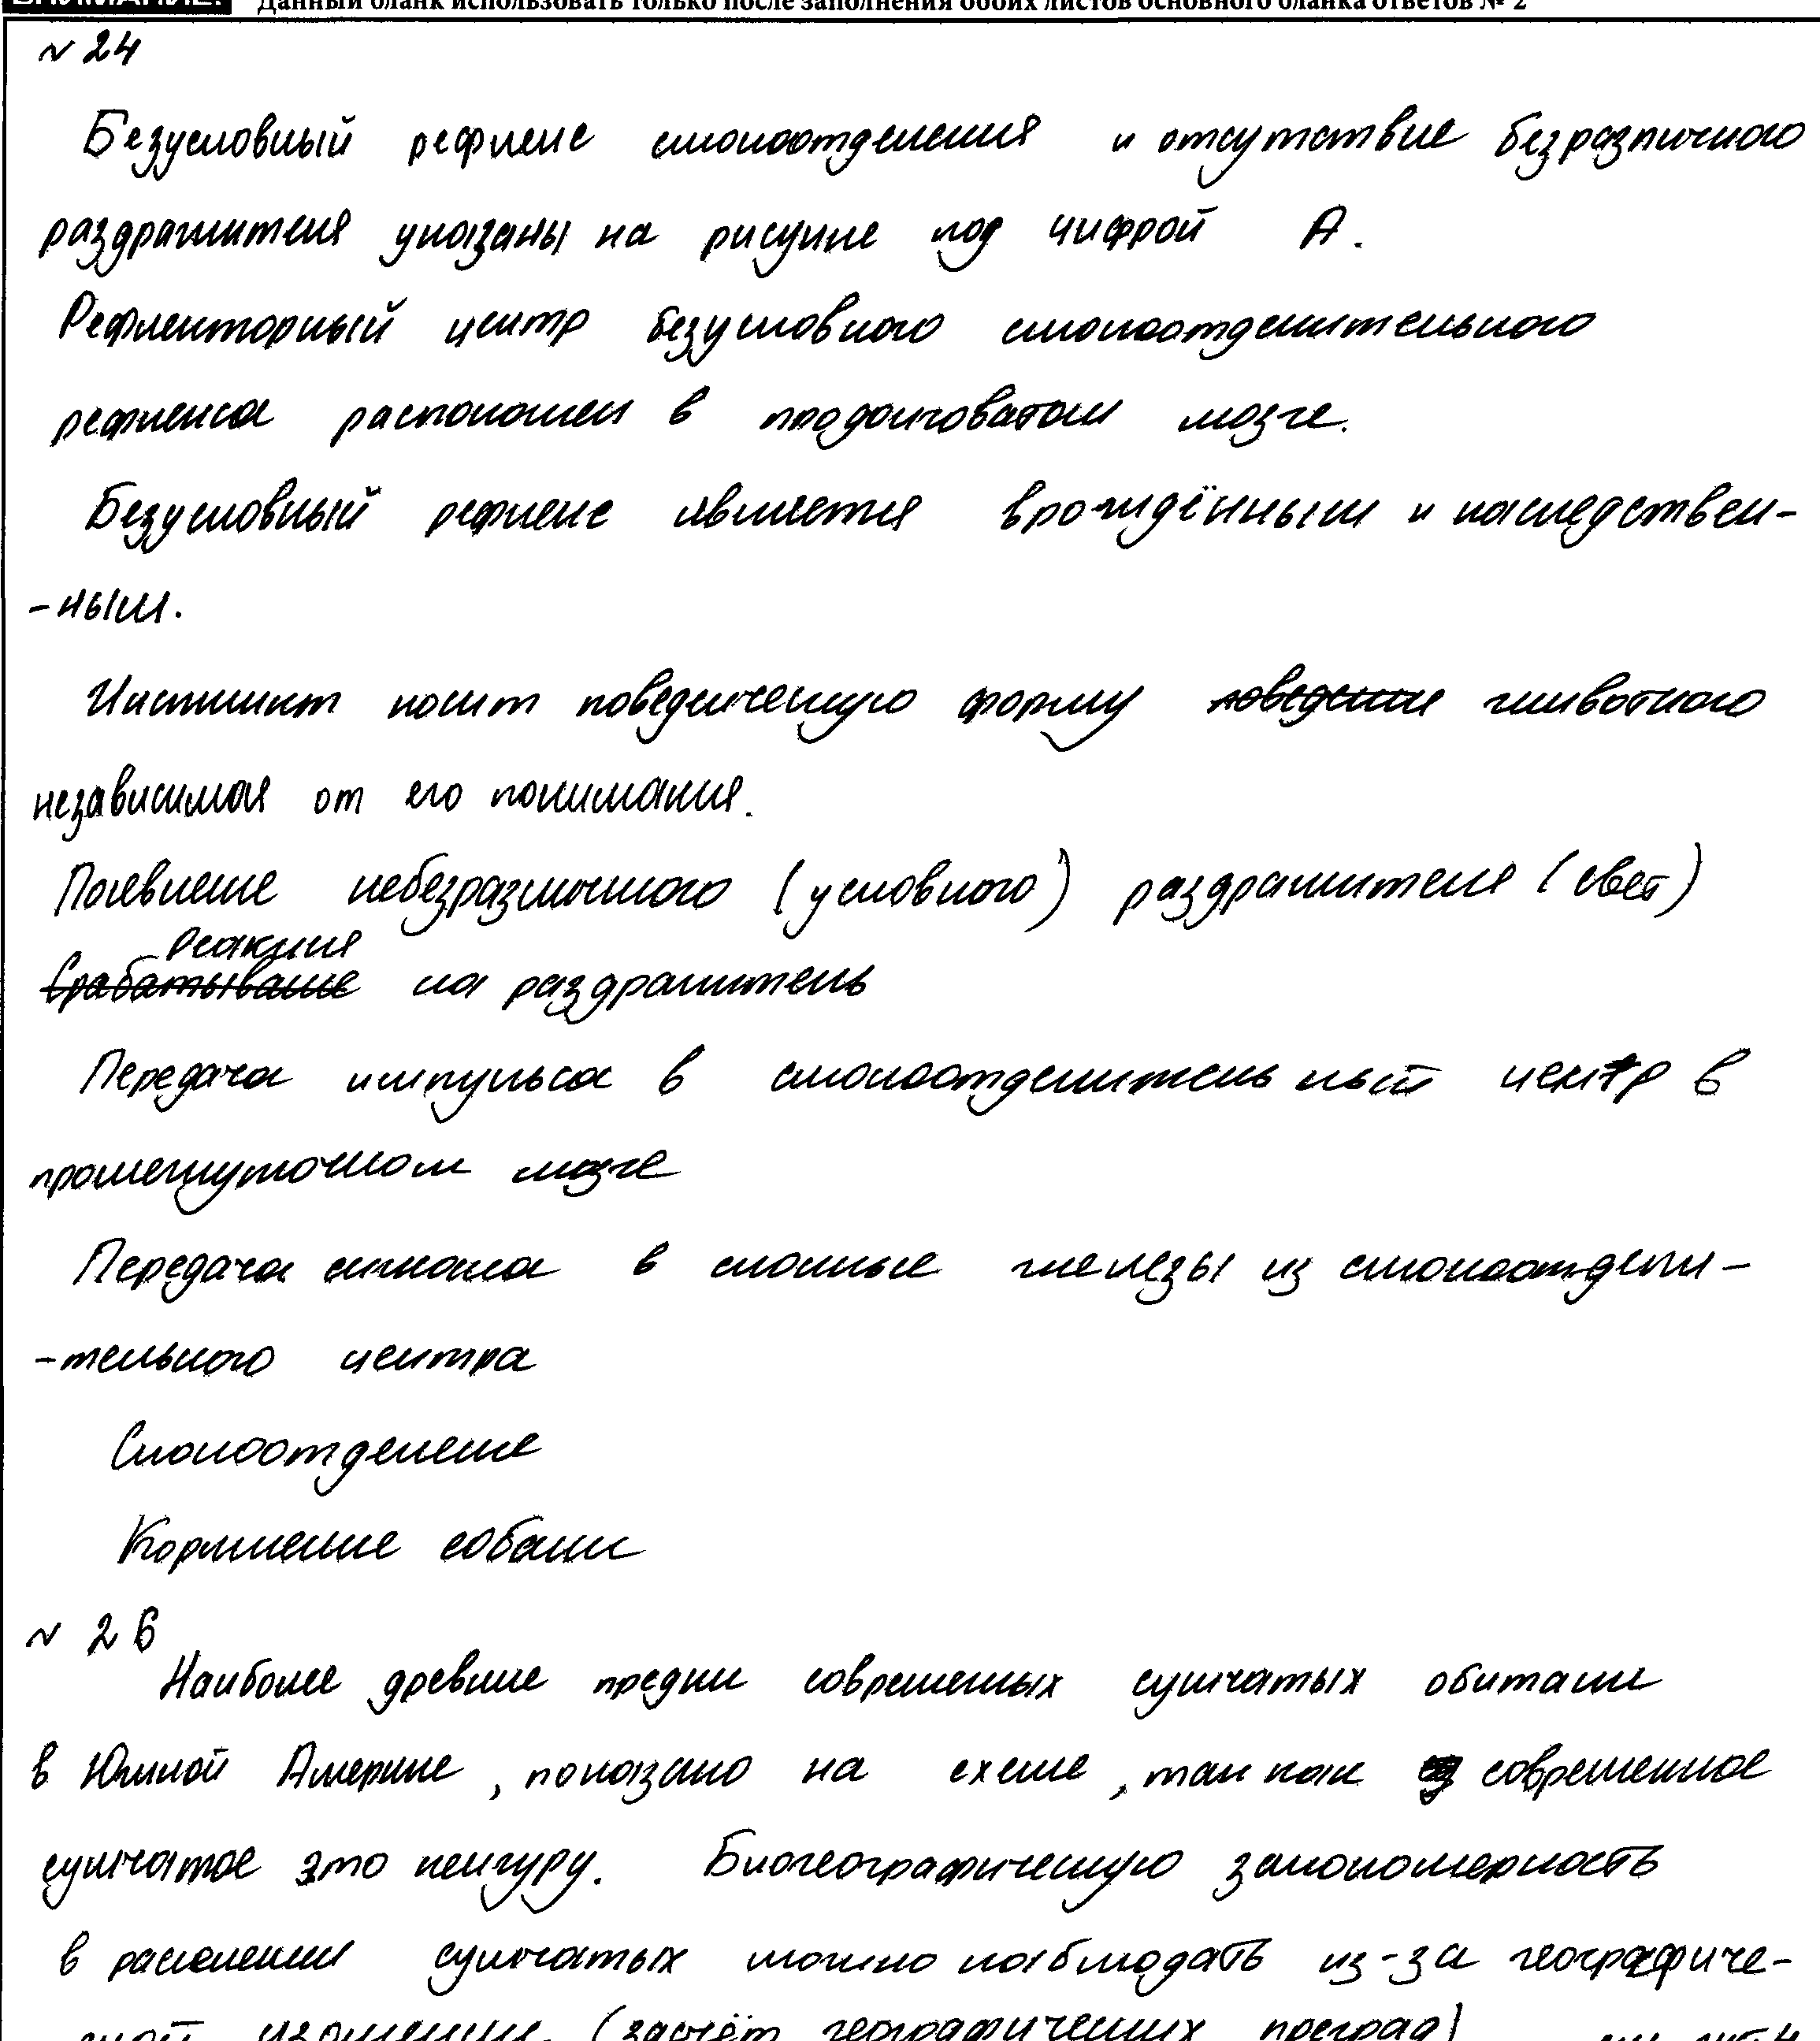 Данный бланк использовать только после заполнения обоих листов основного бланка ответов № 2
№ 24
Безусловный рефлекс слюноотделения и отсутствие безразличного
раздражителя указаны на рисунке под цифрой А.
Рефлекторный центр безусловного слюноотделительного
рефлекса расположен в продолговатом мозге.
Безусловный рефлекс является врождённым и наследствен-
-ным.
Инстинкт носит поведенческую форму поведение животного
независимая от его понимания.
Появление небезразличного (условного) раздражителя (свет)
Реакция
Срабатывание на раздражитель
Передача импульса в слюноотделительный центр в
промежуточном мозге
Передача сигнала в слюнные железы из слюноотдели-
-тельного центра
Слюноотделение
Кормление собаки
№ 26
Наиболее древние предки современных сумчатых обитали
в Южной Америке, показано на схеме, так как современное
сумчатое это кенгуру. Биогеографическую закономерность
в расселении сумчатых можно наблюдать из-за географиче-
ской изоляции (засчёт географических преград)